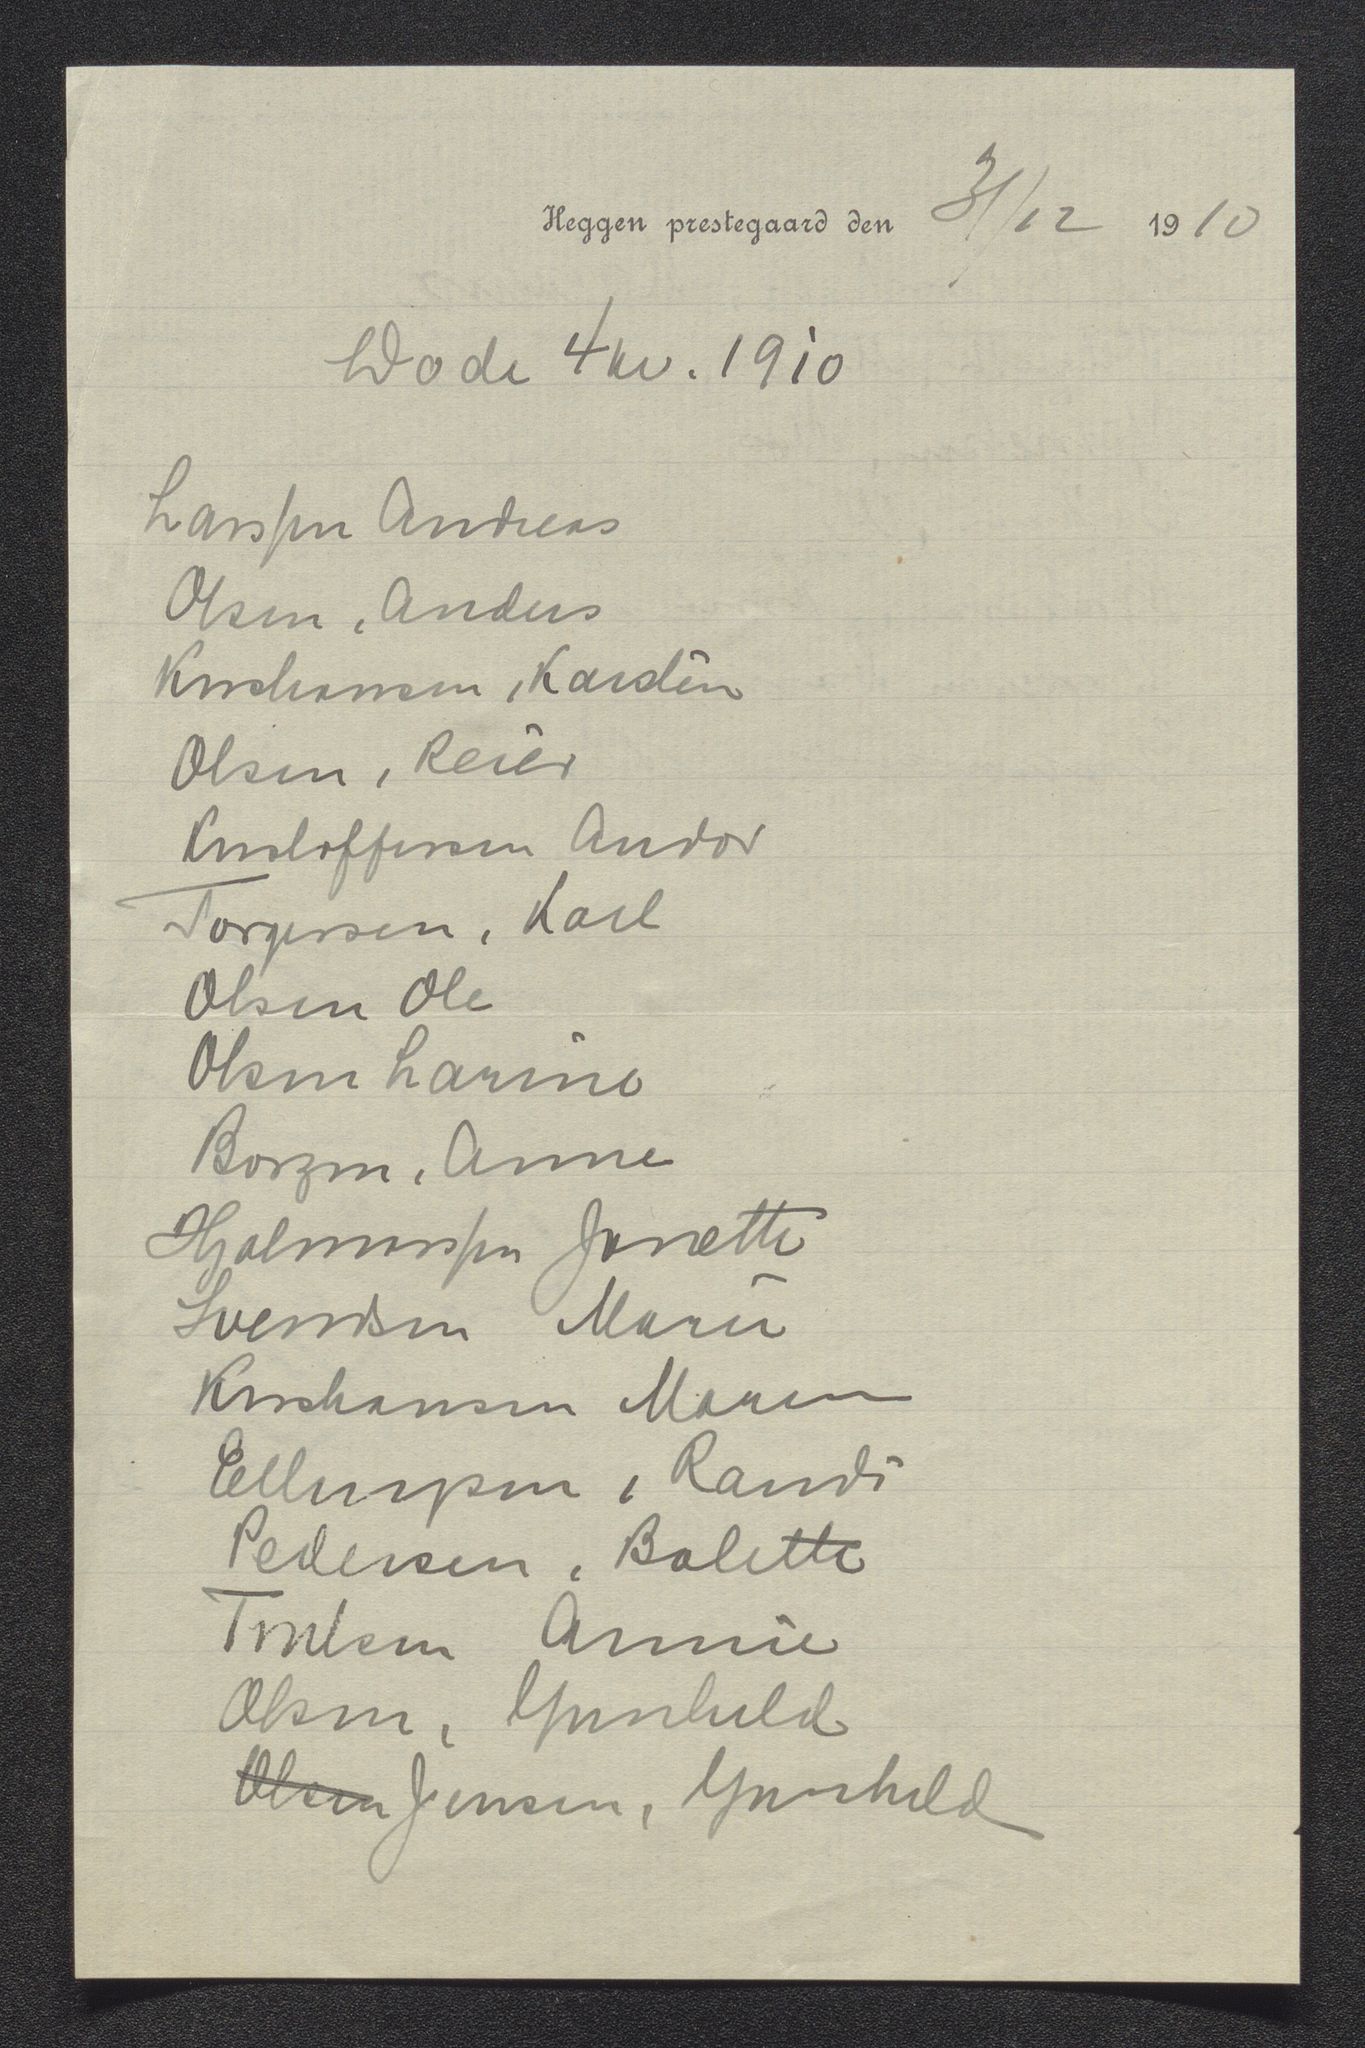 Heggen prestegaard den 31/12 1910
Døde 4 kv. 1910
Larssen Andreas
Olsen, Anders
Kristiansen, Karstin
Olsen, Reier
Kristoffersen Andor
Torgersen, Karl
Olsen Ole
Olsen Larine
Borgen, Anne
Hjalmarssen Janette
Svendsen Marie
Kristiansen Maren
Ellingsen, Randi
Pedersen, Bolette
Troelsen Annie
Olsen, Gunhild
Olsen Jensen, Gunhild